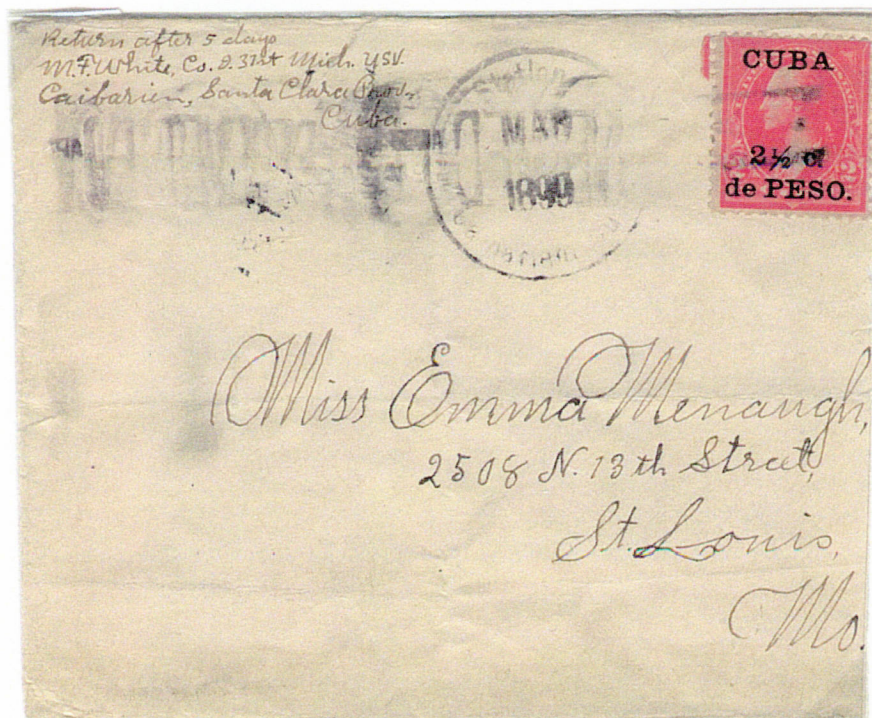 Return after 5 days
M.F. White, Co. I. 31st Mich. USV.
Caibarien, Santa Clara Prov.
Cuba.
Station
MAR
1899
CUBA
2½ c.
de PESO.
2
Miss Emma Menaugh,
2508 N. 13th Street,
St. Louis,
Mo.